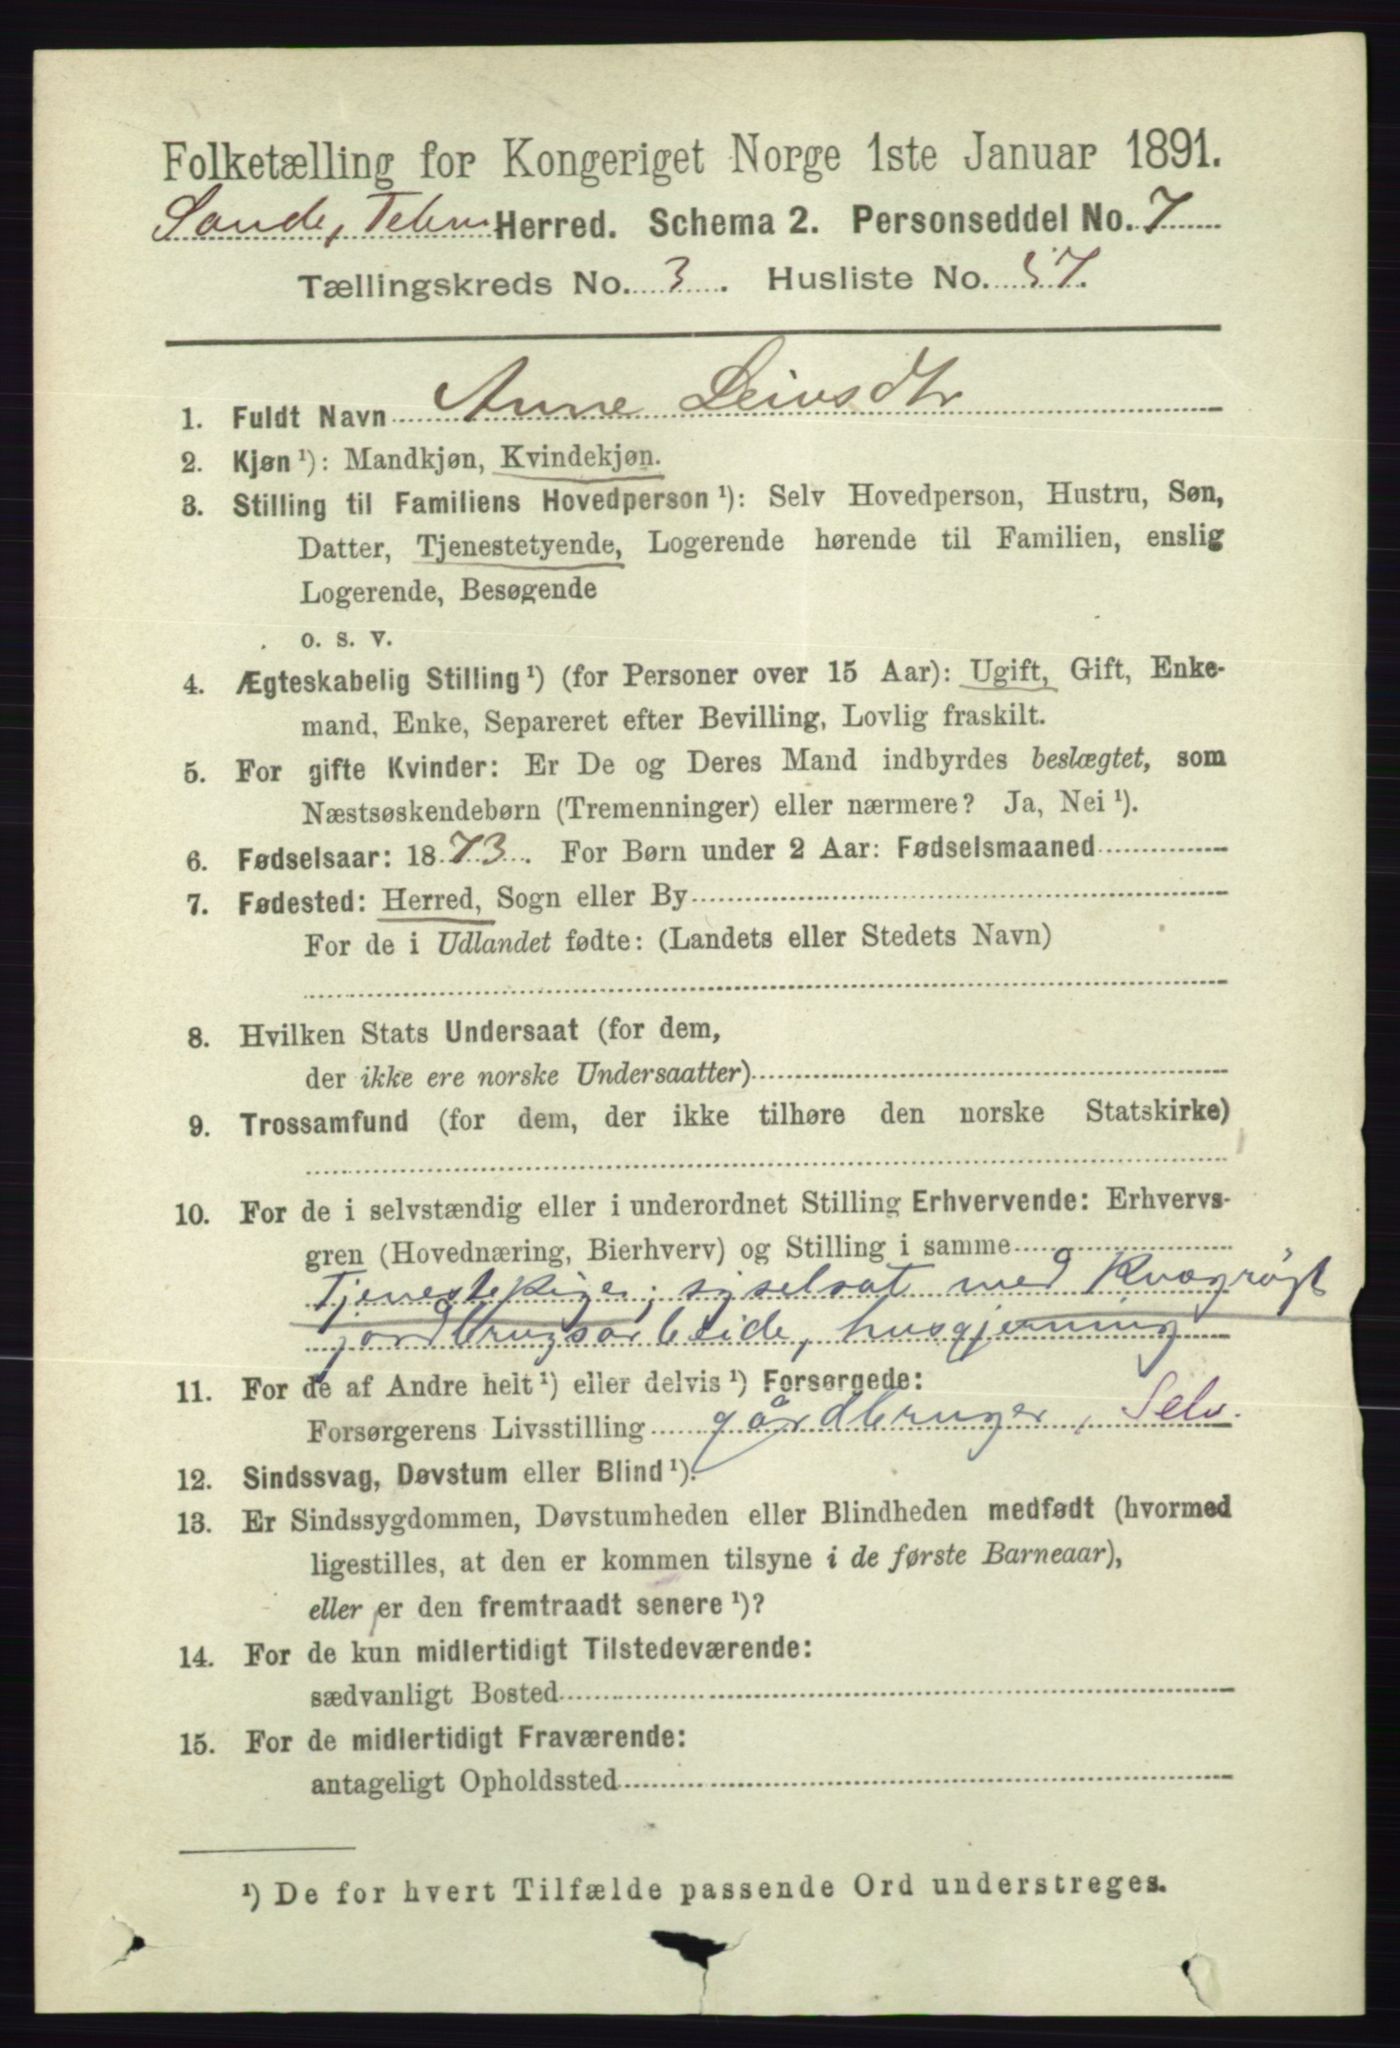 Folketælling for Kongeriget Norge 1ste Januar 1891.
Sande, Telem Herred. Schema 2. Personseddel No. 7
Tællingskreds No. 3. Husliste No. 37.
1. Fuldt Navn Anne Leivsdtr
2. Kjøn ¹): Mandkjøn, Kvindekjøn.
3. Stilling til Familiens Hovedperson ¹): Selv Hovedperson, Hustru, Søn,
Datter, Tjenestetyende, Logerende hørende til Familien, enslig
Logerende, Besøgende
o. s. v.
4. Ægteskabelig Stilling ¹) (for Personer over 15 Aar): Ugift, Gift, Enke-
mand, Enke, Separeret efter Bevilling, Lovlig fraskilt.
5. For gifte Kvinder: Er De og Deres Mand indbyrdes beslægtet, som
Næstsøskendebørn (Tremenninger) eller nærmere? Ja, Nei ¹).
6. Fødselsaar: 1873. For Børn under 2 Aar: Fødselsmaaned
7. Fødested: Herred, Sogn eller By
For de i Udlandet fødte: (Landets eller Stedets Navn)
8. Hvilken Stats Undersaat (for dem,
der ikke ere norske Undersaatter)
9. Trossamfund (for dem, der ikke tilhøre den norske Statskirke)
10. For de i selvstændig eller i underordnet Stilling Erhvervende: Erhvervs-
gren (Hovednæring, Bierhverv) og Stilling i samme
Tjenestepige; syselsat med Kvægrøgt
jordbrugsarbeide, husgjerning
11. For de af Andre helt ¹) eller delvis ¹) Forsørgede:
Forsørgerens Livsstilling gårdbruger, Selv.
12. Sindssvag, Døvstum eller Blind ¹).
13. Er Sindssygdommen, Døvstumheden eller Blindheden medfødt (hvormed
ligestilles, at den er kommen tilsyne i de første Barneaar),
eller er den fremtraadt senere ¹)?
14. For de kun midlertidigt Tilstedeværende:
sædvanligt Bosted
15. For de midlertidigt Fraværende:
antageligt Opholdssted
¹) De for hvert Tilfælde passende Ord understreges.